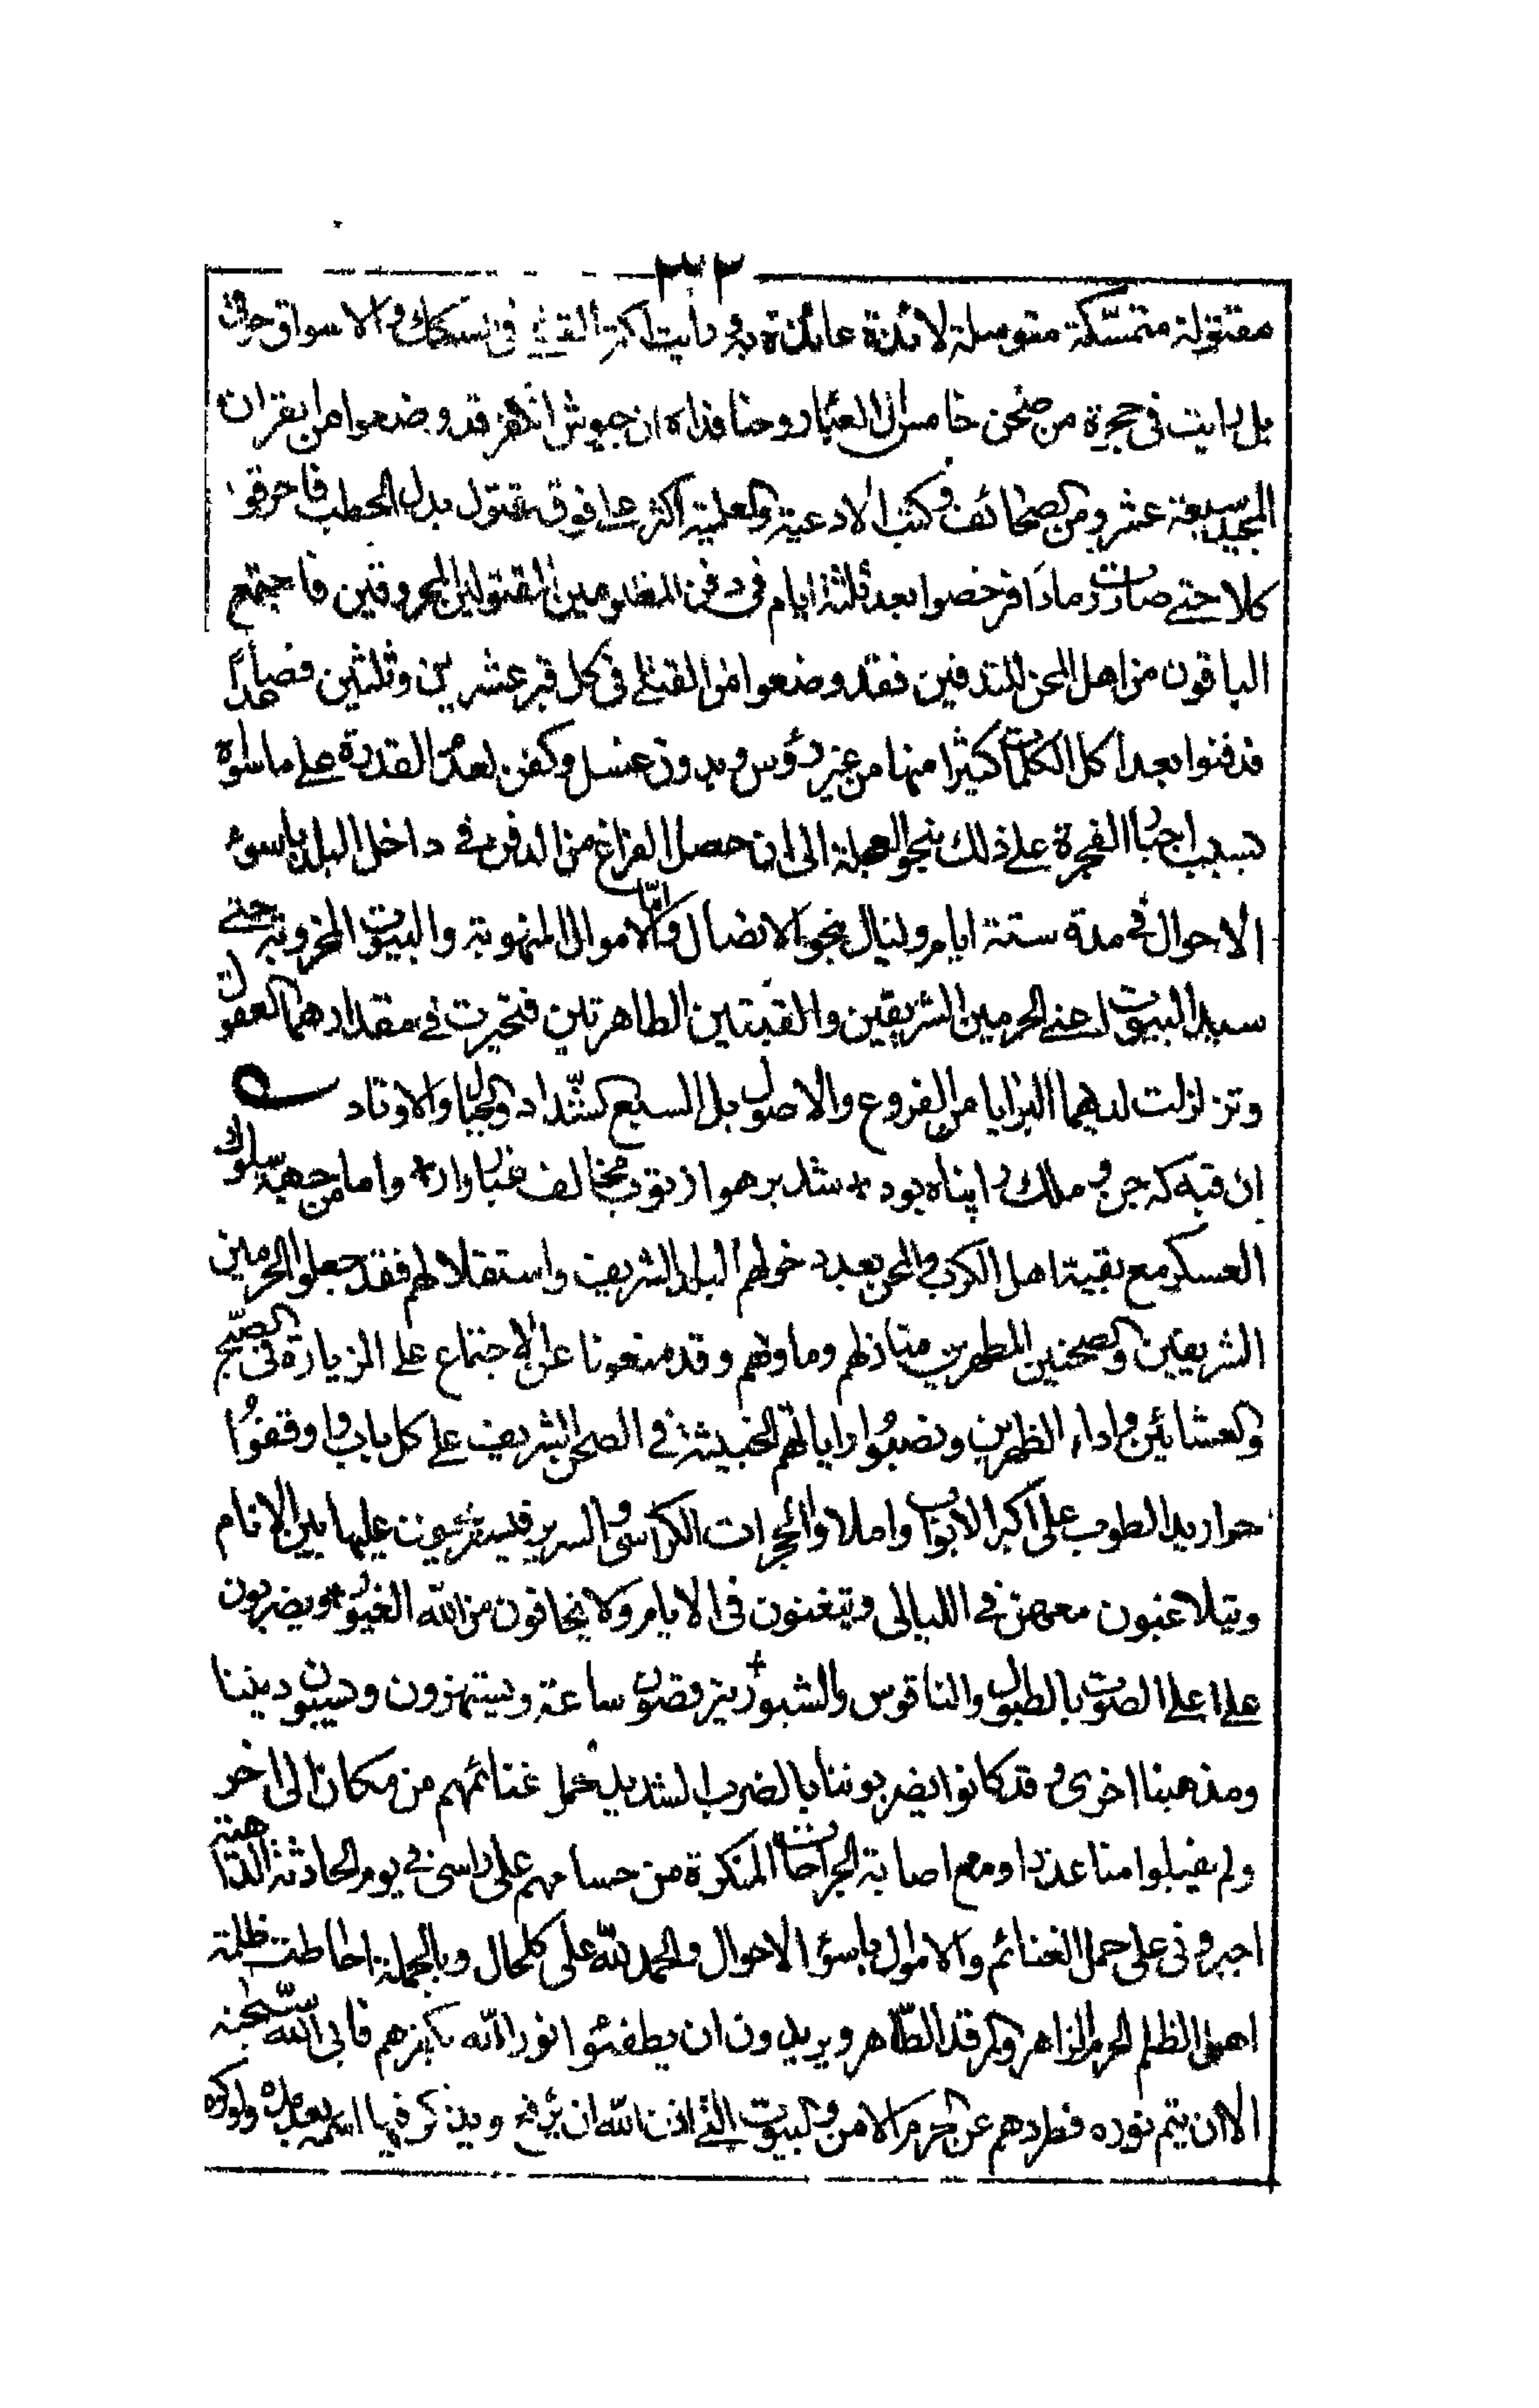 ٣٢٣
مقتولة متمسّكة متوسلة لائذة عائذة به ورأيت اكثر القتلى فى السكك والاسواق حرق
بل رايت فى حجرة من صحن خامس ال العبا روحنا فداه ان جيوش الكفر قد وضعوا من القران
المجيد سبعة عشر ومن الصحائف وكتب الادعية والعلمية اكثر على فوق مقتول بدل الحطب فاحرقو
كلا حتى صارت رمادا فرخصوا بعد ثلثة ايام فى دفن المظلومين المقتولين المحروقين فاجتمع
الباقون من اهل المحن للتدفين فقد وضعوا من القتلى فى كل قبر عشرين وثلثين فصاعدا
فدفنوا بعد اكل الكلاب كثيرا منها من غير رؤس وبدون غسل وكفن لعدم القدرة على ما سواه
بسبب اجبار الفجرة على ذلك بنحو العجلة الى ان حصل الفراغ من الدفن فى داخل البلد باسوء
الاحوال فى مدة ستة ايام وليال بنحو الاتصال وامّا الاموال المنهوبة والبيوت المخروبة حتى
سيد البيوت اعنى الحرمين الشريفين والقبتين الطاهرتين فتحيرت فى مقدارهما العقول
وتزلزلت لديهما البرايا من الفروع والاصول بل السبع الشّداد والجبال والاوتاد
ان قبه كه جن و ملك را پناه بود * شد بر هوا ز توب مخالف غبار وار * واما من جهة سلوك
العسكر مع بقية اهل الكرب والمحن بعد دخولهم البلد الشريف واستقلالهم فقد جعلوا الحرمين
الشريفين والصحنين المطهرين منازلهم وماويهم وقد منعونا عن الاجتماع على الزيارة فى الصبّح
والعشائين واداء الظهرين ونصبوا راياتهم الخبيثة فى الصحن الشريف على كل باب واوقفوا
حواريد الطوب على اكبر الابواب واملاوا الحجرات الكراسى والسرير فيستريحون عليها بين الانام
ويتلاعبون معهن فى الليالى ويتغنون فى الايام ولا يخافون من الله الغيور * ويضربون
على اعلى الصوت بالطبول والناقوس والشبور + يرقصون ساعة ويستهزون ويسبون ديننا
ومذهبنا اخرى وقد كانوا يضربوننا بالضرب الشديد لحمل غنائمهم من مكان الى اخر
ولم يقبلوا منا عذرا ومع اصابة الجراحات المنكرة من حسامهم على راسى فى يوم الحادثة الداهية
اجبرونى على حمل الغنائم والاموال باسوء الاحوال والحمد لله على كل حال وبالجملة احاطت ظلمة
اهل الظلم الحرم الزاهر والمرقد الطّاهر ويريدون ان يطفئوا نور الله بكفرهم فابى الله سبّحنه
الا ان يتم نوره فطردهم عن الحرم الامن والبيوت التى اذن الله ان يرفع ويذكر فيها اسمه بعدله ولو كره